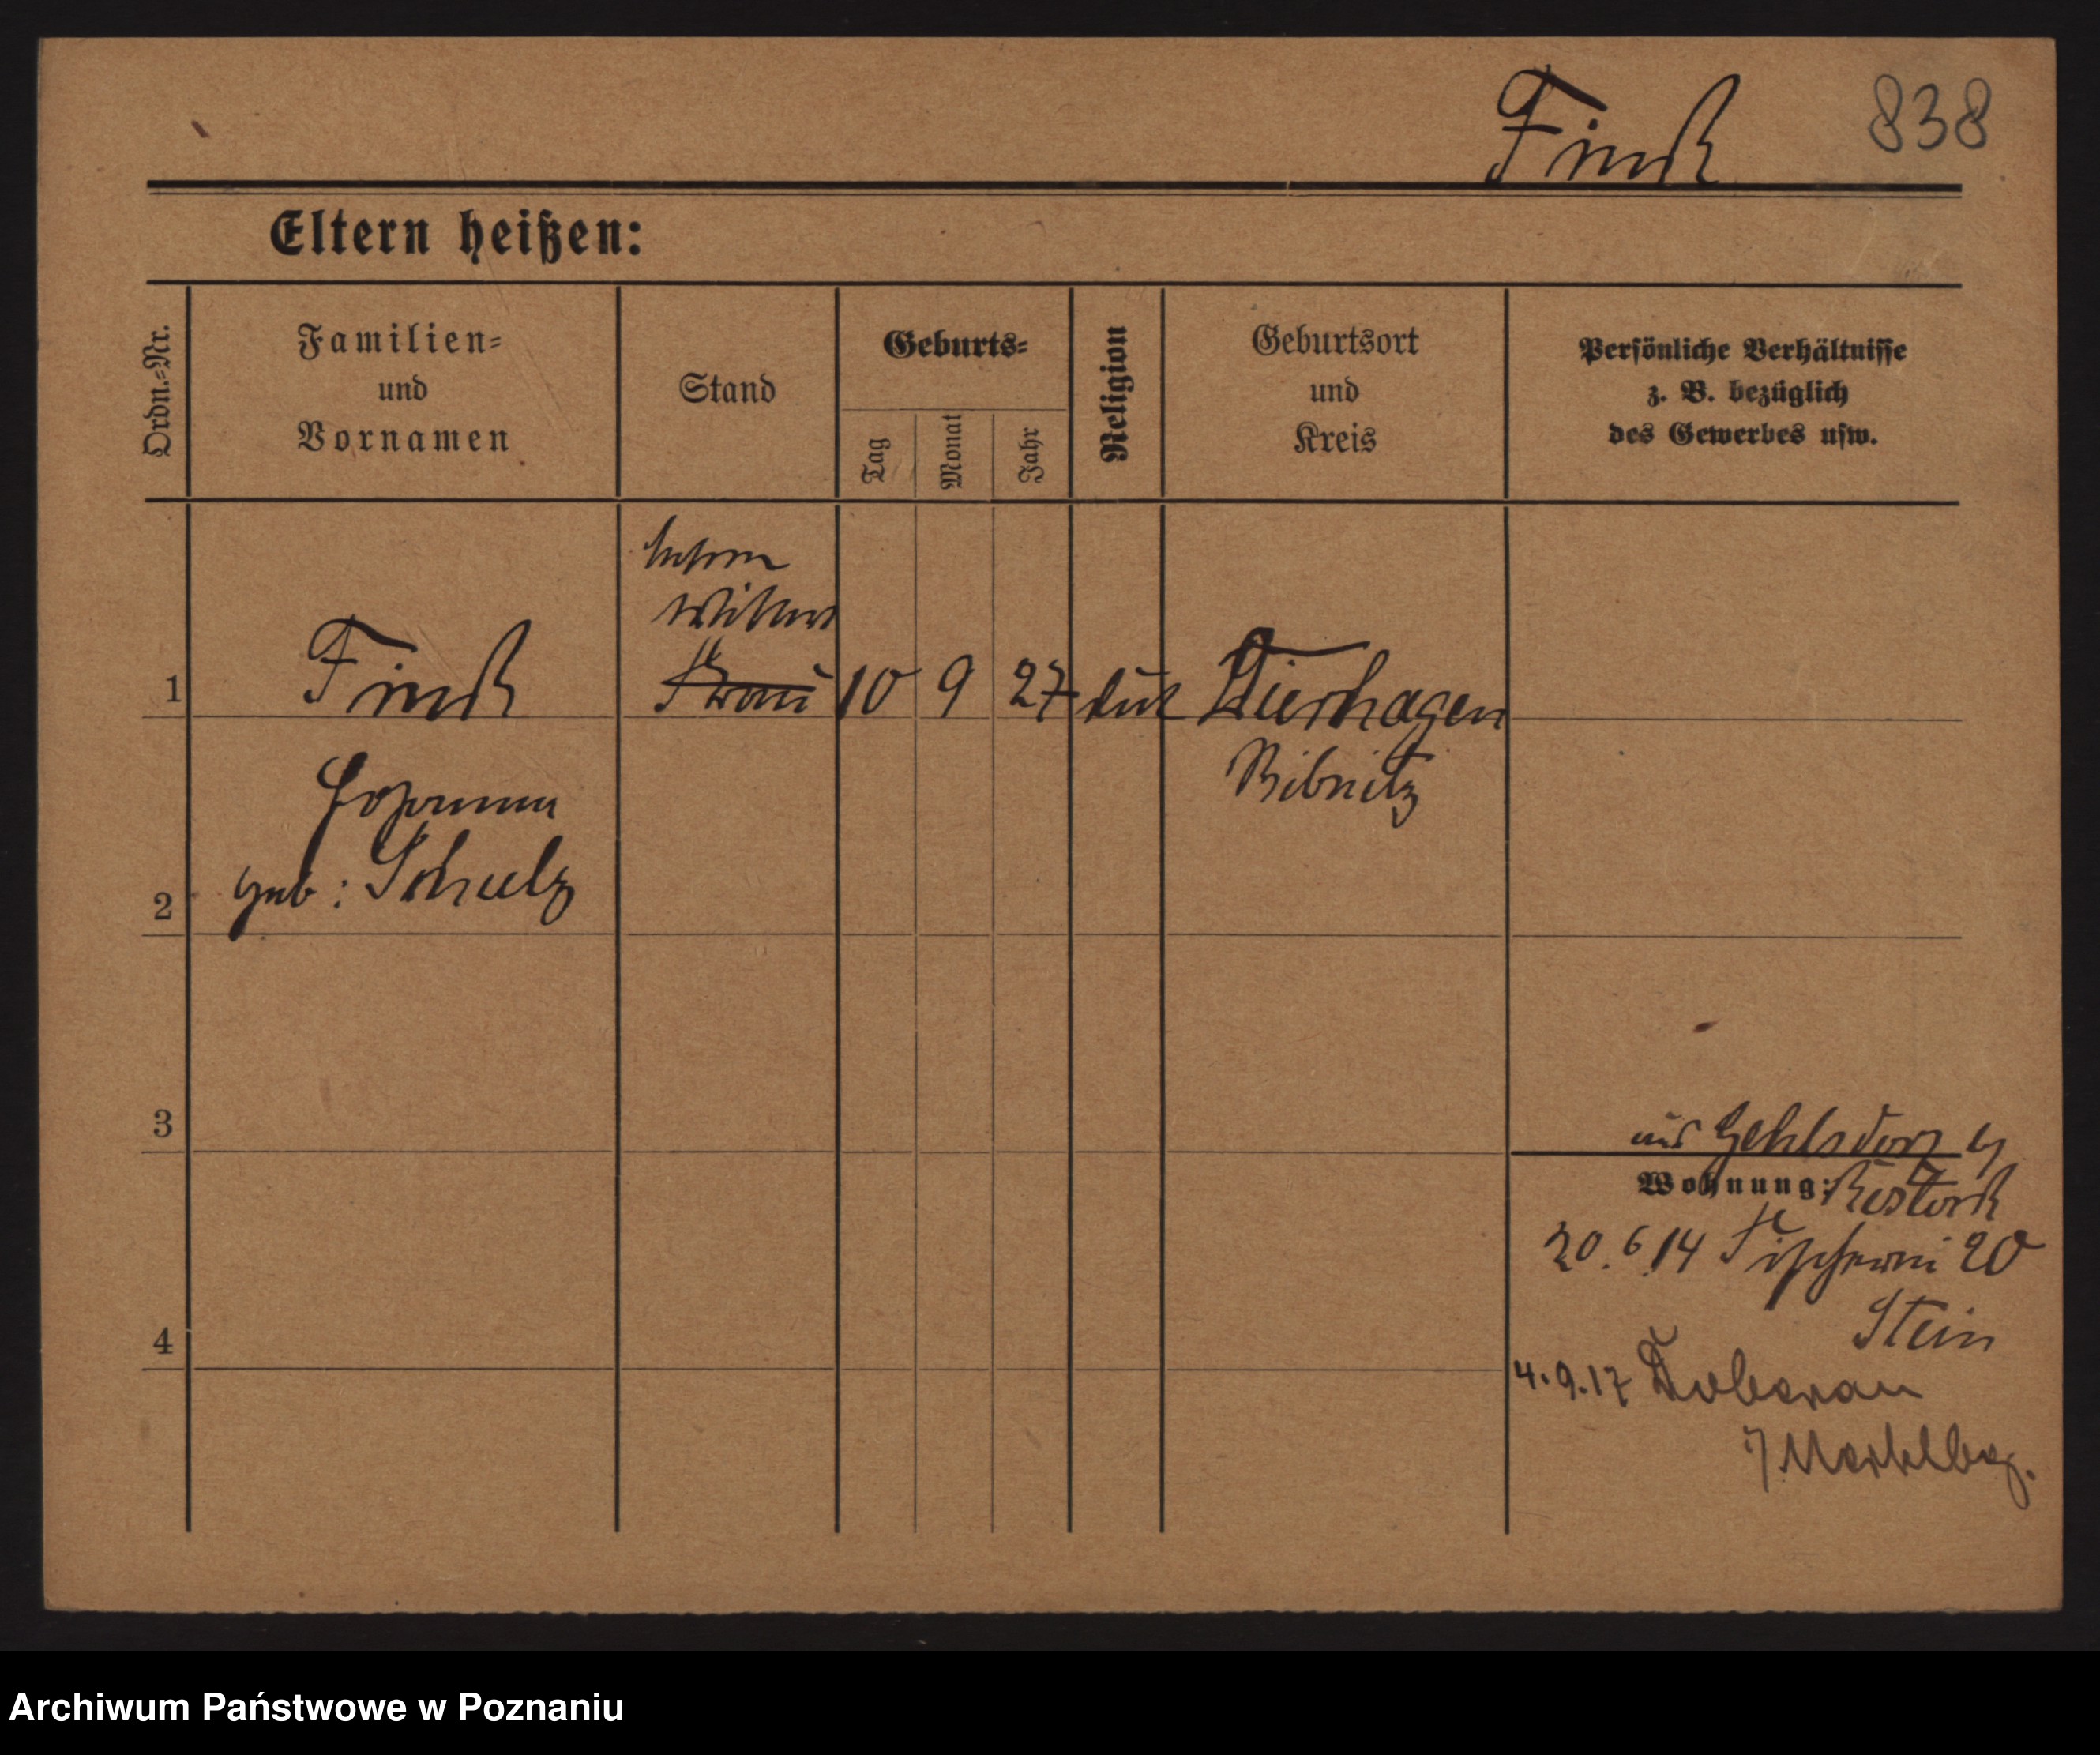 Finck 838
Eltern heißen:
Ordn.=Nr.
Familien=
und
Vornamen
Stand
Geburts=
Tag
Monat
Jahr
Religion
Geburtsort
und
Kreis
Persönliche Verhältnisse
z. B. bezüglich
des Gewerbes usw.
Witwe
Frau
1 Finck 10 9 27 luth Dierhagen
Ribnitz
Johanna
2 geb: Schulz
3
aus Gehlsdorf b/
Wohnung: Rostock
20.6.14 Fischerei 20
Stein
4
4.9.17 Doberan
i/ Mecklbg.
Archiwum Państwowe w Poznaniu